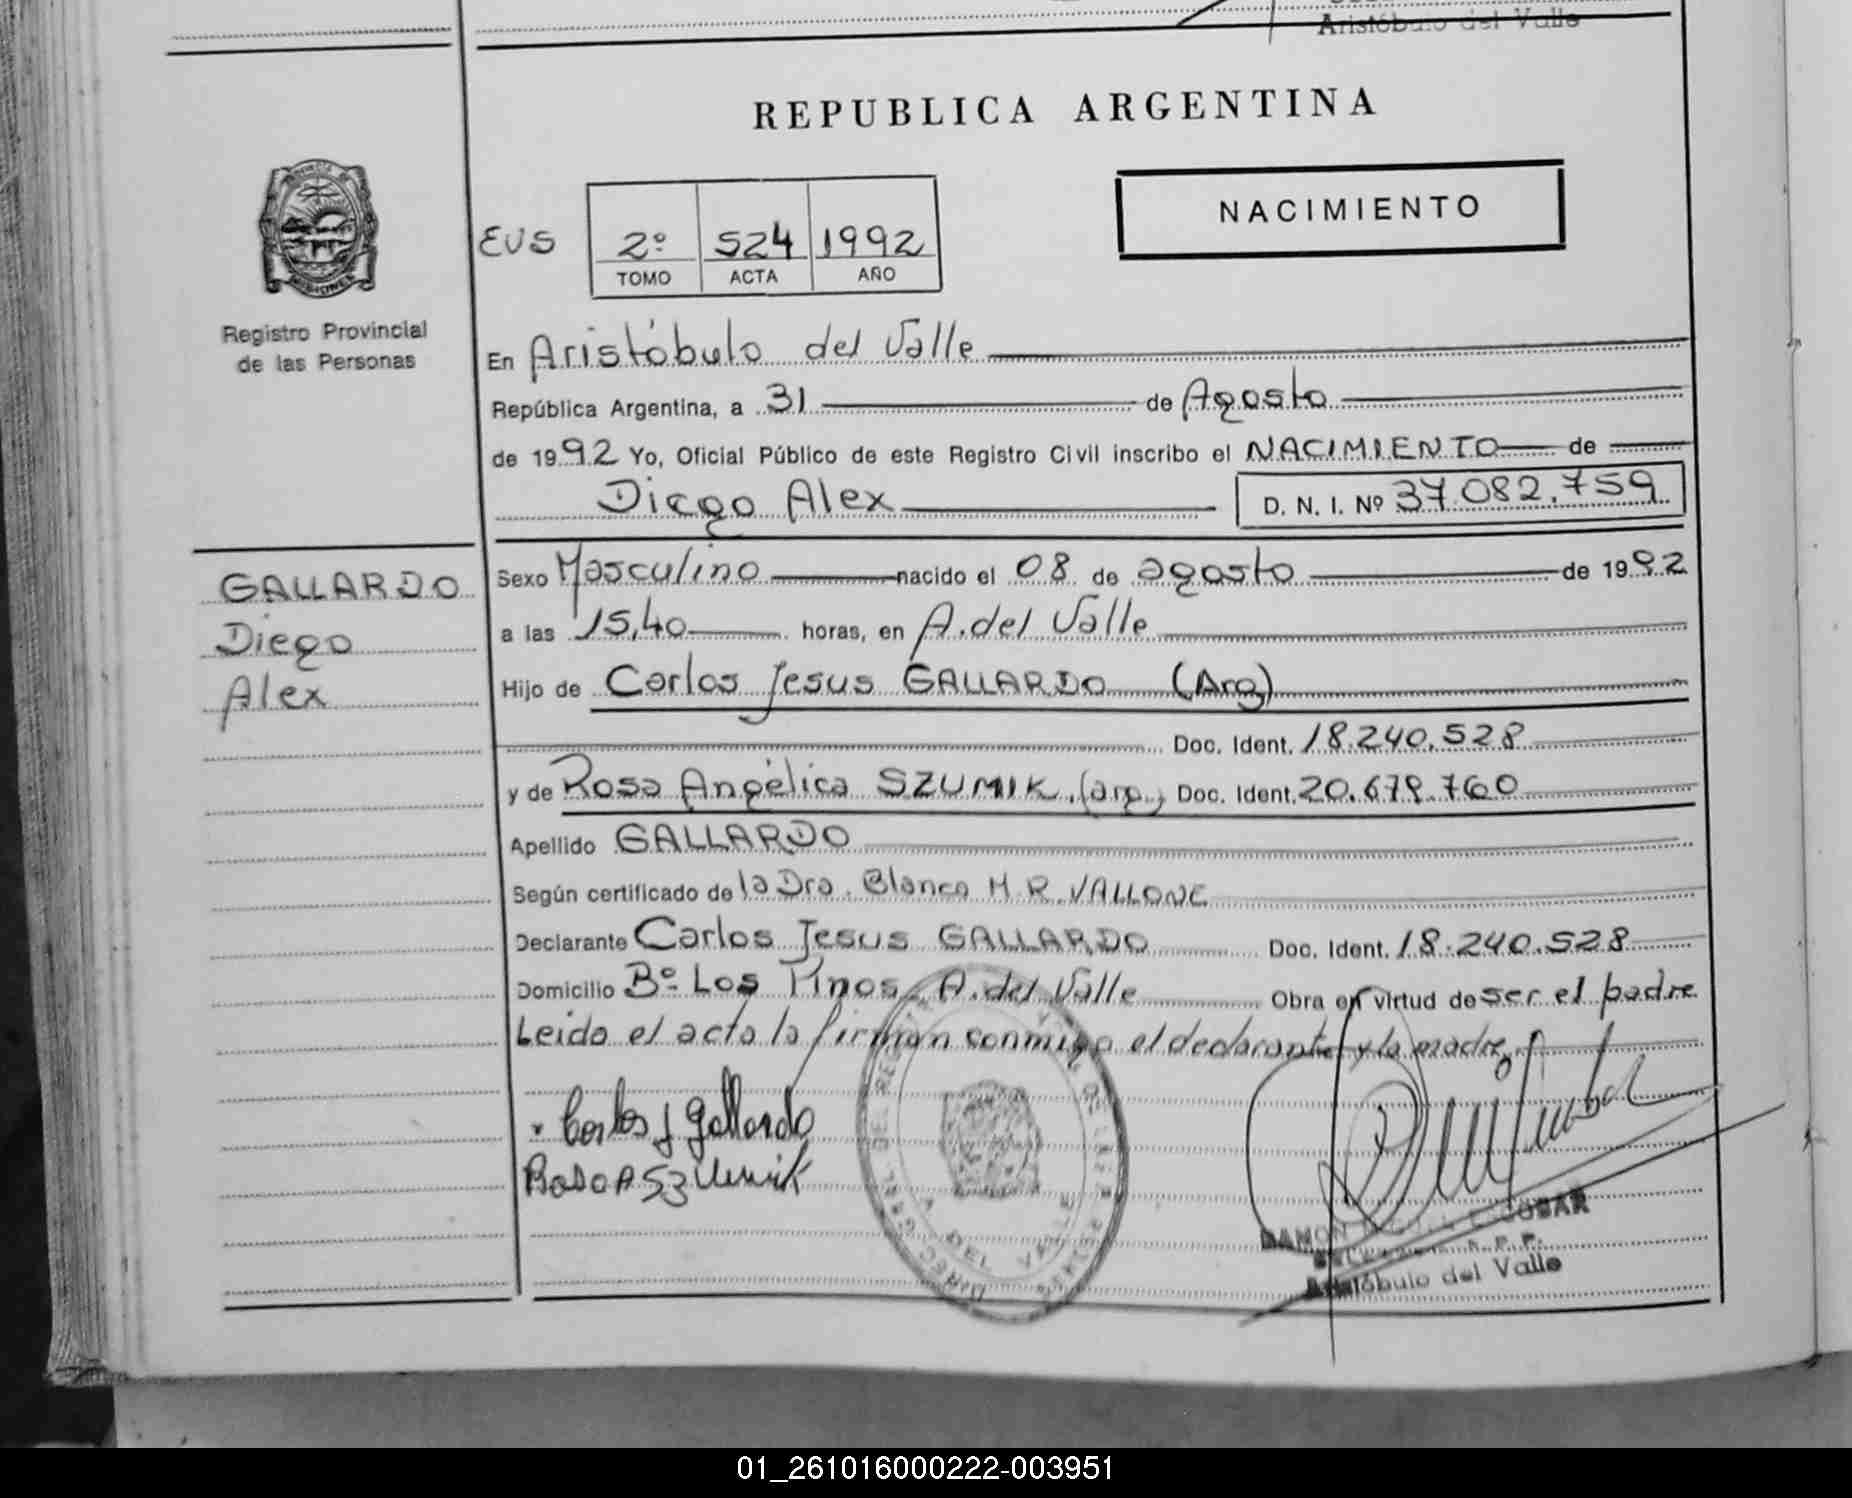 Aristóbulo del Valle
REPUBLICA ARGENTINA
NACIMIENTO
EVS 2º 524 1992
TOMO ACTA AÑO
PROVINCIA DE
MISIONES
Registro Provincial
de las Personas
En Aristóbulo del Valle
República Argentina, a 31 de Agosto
de 1992 Yo, Oficial Público de este Registro Civil inscribo el NACIMIENTO de
Diego Alex D. N. I. Nº 37.082.759
GALLARDO
Diego
Alex
Sexo Masculino nacido el 08 de agosto de 1992
a las 15,40 horas, en A. del Valle
Hijo de Carlos Jesus GALLARDO (Arg)
Doc. Ident. 18.240.528
y de Rosa Angélica SZUMIK (arg) Doc. Ident. 20.679.760
Apellido GALLARDO
Según certificado de la Dra. Blanca M. R. VALLONE
Declarante Carlos Jesus GALLARDO Doc. Ident. 18.240.528
Domicilio Bº Los Pinos A. del Valle Obra en virtud de ser el padre
Leido el acta la firman conmigo el declarante y la madre
Carlos J Gallardo
Rosa A Szumik
A. DEL VALLE
RAMON ESCOBAR
Aristóbulo del Valle
01_261016000222-003951